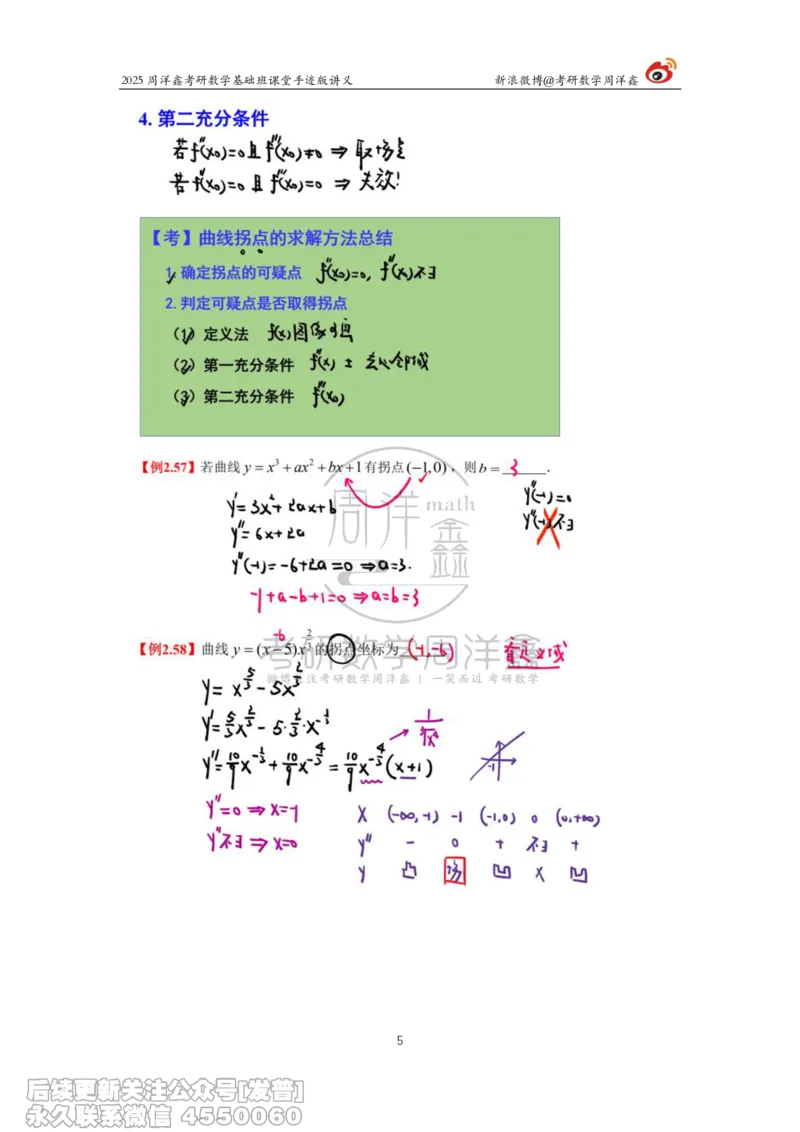 2025 周洋鑫考研数学基础班课堂手迹版讲义 新浪微博@考研数学周洋鑫
4. 第二充分条件
若f''(x₀)=0且f'''(x₀)≠0 ⇒ 取拐点
若f''(x₀)=0且f'''(x₀)=0 ⇒ 失效!
【考】曲线拐点的求解方法总结
1. 确定拐点的可疑点 f''(x₀)=0, f''(x₀)不∃
2. 判定可疑点是否取得拐点
（1）定义法 f(x)图像可画
（2）第一充分条件 f''(x) ± 去心邻域
（3）第二充分条件 f'''(x₀)
【例2.57】若曲线 y = x³ + ax² + bx + 1 有拐点 (−1,0)，则 b = 3 .
y''(-1)=0
y''(-1)不∃
y'=3x²+2ax+b
y''=6x+2a
y''(-1)=-6+2a=0 ⇒ a=3.
-1+a-b+1=0 ⇒ a=b=3
-6
【例2.58】曲线 y = (x−5)x^(2/3) 的拐点坐标为 (-1,-6) 看定义域
考研数学周洋鑫
微博关注考研数学周洋鑫 | 一笑而过 考研数学
周洋 math 鑫
y = x^(5/3) - 5x^(2/3)
y' = 5/3 x^(2/3) - 5·2/3·x^(-1/3)
1/∛x⁴
y'' = 10/9 x^(-1/3) + 10/9 x^(-4/3) = 10/9 x^(-4/3) (x+1)
-1
y''=0 ⇒ x=-1
y''不∃ ⇒ x=0
x (-∞,-1) -1 (-1,0) 0 (0,+∞)
y'' - 0 + 不∃ +
y 凸 拐 凹 × 凹
5
后续更新关注公众号[发普]
永久联系微信 4550060